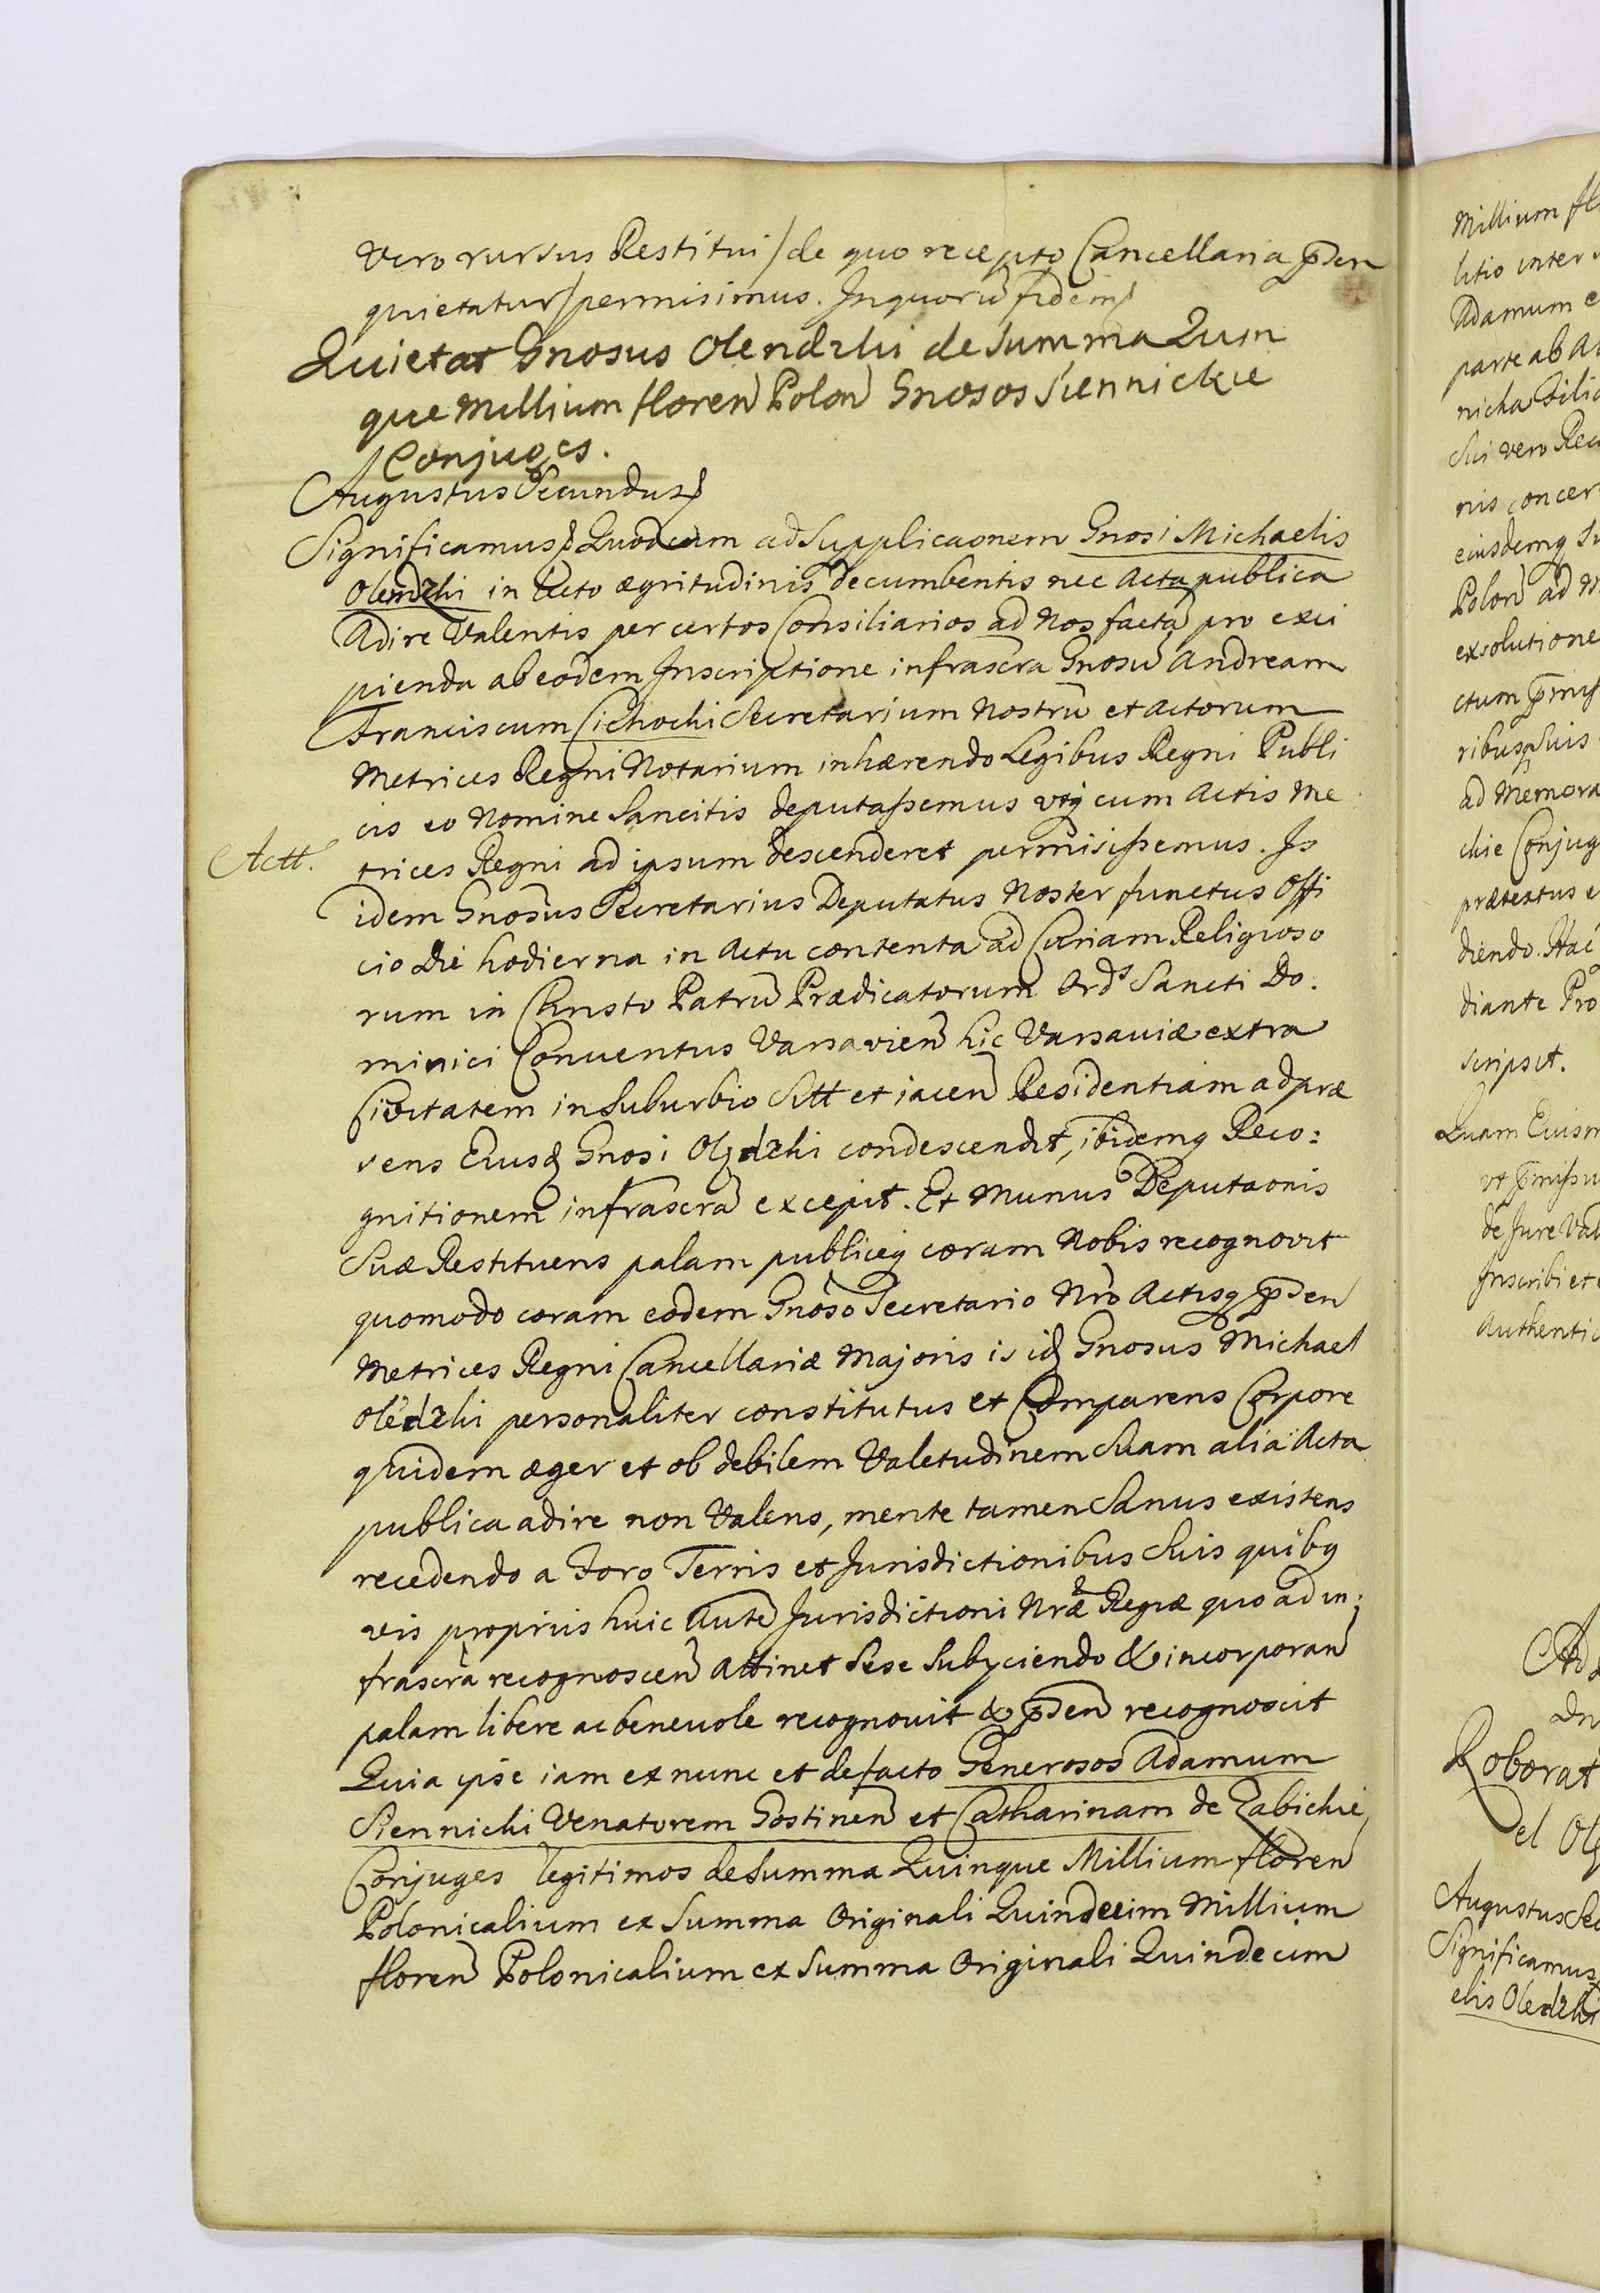 Vero rursus Restitui /de quo recepto Cancellaria pñ
quietatur/ permisimus. In quorũ fidem
Quietat Gnosus Olendzki de Summa Quin
que Millium floreñ Poloñ Gnosos Siennickie
Conjuges.
Augustus Secundus
Significamus Quod cum ad Supplicaonem Gnosi Michaelis
Olendzki in lecto ægritudinis decumbentis nec Acta publica
Adire Valentis per certos Consiliarios ad Nos factã pro exci
pienda ab eodem Inscriptione infrascra Gnosũ Andream
Franciscum Cichocki Secretarium Nostrũ et Actorum
Metrices Regni Notarium inhærendo Legibus Regni Publi
cis eo Nomine Sancitis deputassemus utq cum Actis Me
Actt.
trices Regni ad ipsum descenderet permisissemus. Is
idem Gnosus Secretarius Deputatus Noster functus Offi
cio Die hodierna in Actu contenta ad Curiam Religioso
rum in Christo Patrũ Prædicatorum Ords Sancti Do:
minici Conventus Varsavieñ hic Varsaviæ extra
Civitatem in Suburbio Sitt et iaceñ Residentiam ad præ
sens Eiusq Gnosi Olędzki condescendit, ibidemq Reco:
gnitionem infrascrã excepit. Et Munus Deputaonis
Suæ Restituens palam publiceq coram Nobis recognovit
quomodo coram eodem Gnoso Secretario Nro Actisq pñ
Metrices Regni Cancellariæ Majoris is idq Gnosus Michael
Olędzki personaliter constitutus et Comparens Corpore
quidem æger et ob debilem Valetudinem Suam alia Acta
publica adire non Valens, mente tamen Sanus existens
recedendo a Foro Terris et Jurisdictionibus Suis quibq
vis propriis huic aute Jurisdictioni Nræ Regiæ quo ad in:
frascra recognosceñ attinet Sese Subyciendo & incorporañ
palam libere ac benevole recognovit & pñ recognoscit
Quia ipse iam ex nunc et de facto Generosos Adamum
Siennicki Venatorem Gostineñ et Catharinam de Zabickie,
Conjuges legitimos de Summa Quinque Millium floreñ
Polonicalium ex Summa Originali Quindecim Millium
floreñ Polonicalium ex Summa Originali Quindecim
Millium
litio inter
Adamum
parte ab
nicka
Sui vero
nis concer
eiusdemq
Poloñ ad
exsolutione
ctum
ribusq Suis
ad Memora
ckie Conjug
prætextus
diendo. Hac
diante Pro
scripsit.
Quam Eiusm
ut
de Jure
Inscribi et
Authentic
Roborat
el
Augustus Sec
Significamus
elis Olędzki